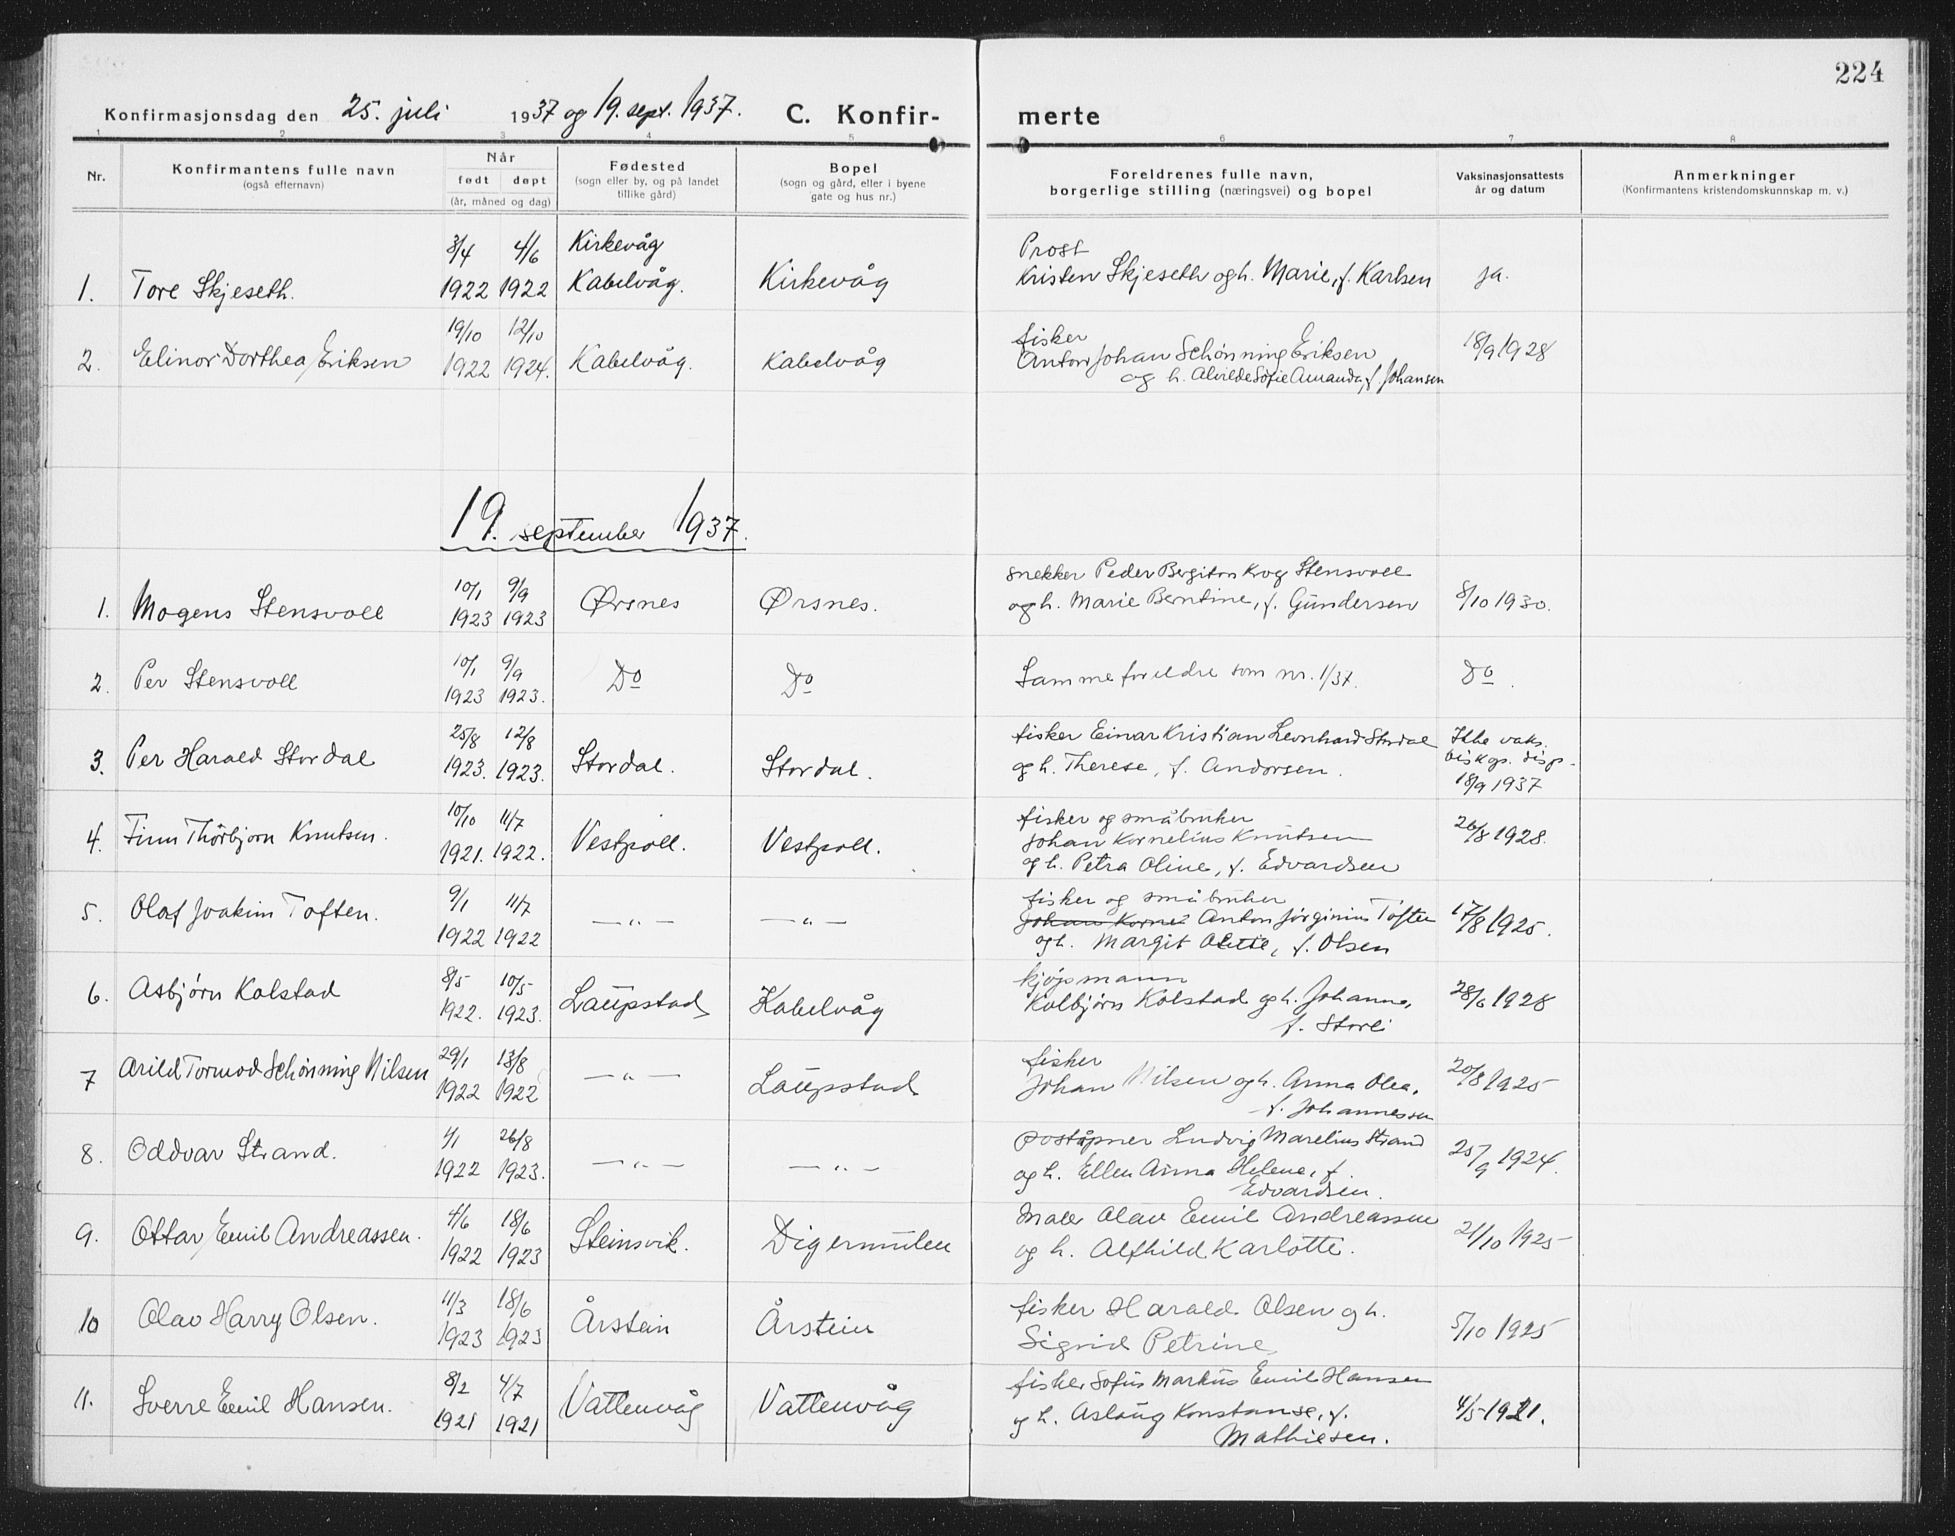 224
Konfirmasjonsdag den 25. juli 1937 og 19. sept. 1937. C. Konfir- merte
1 2 3 4 5 6 7 8
Nr. Konfirmantens fulle navn (også efternavn) Når født døpt (år, måned og dag) Fødested (sogn eller by, og på landet tillike gård) Bopel (sogn og gård, eller i byene gate og hus nr.) Foreldrenes fulle navn, borgerlige stilling (næringsvei) og bopel Vaksinasjonsattests år og datum Anmerkninger (Konfirmantens kristendomskunnskap m. v.)
3/4 4/6 Kirkevåg Prost
1. Tore Skjeseth. 1922 1922 Kabelvåg. Kirkevåg Kristen Skjeseth og h. Marie, f. Karlsen ja.
19/10 12/10 fisker
2. Elinor Dorthea Eriksen 1922 1924. Kabelvåg. Kabelvåg Anton Johan Schønning Eriksen 18/9 1928
og h. Alvilde Sofie Amanda, f. Johansen
19. september 1937.
10/1 9/9 snekker Peder Bergiton Krog Stensvoll
1. Mogens Stensvoll 1923 1923 Ørsnes Ørsnes. og h. Marie Berntine, f. Gundersen 8/10 1930.
10/1 9/9
2. Per Stensvoll 1923 1923. Do Do Samme foreldre som nr. 1/37. Do.
25/8 12/8 fisker Einar Kristian Leonhard Stordal Ikke vaks.
3. Per Harald Stordal 1923. 1923. Stordal. Stordal. og h. Therese, f. Andorsen. biskops. disp.
18/9 1937
10/10 11/7 fisker og småbruker
4. Finn Thorbjørn Knutsen. 1921. 1922. Vestpoll. Vestpoll. Johan Kornelius Knutsen 26/8 1928.
og h. Petra Oline, f. Edvardsen
9/1 11/7 fisker og småbruker
5. Olaf Joakim Toften. 1922 1922 — „ — — „ — Johan Korne Anton Jørginius Toften 17/8 1925.
og h. Margit Olette, f. Olsen
8/5 10/5 kjøpmann
6. Asbjørn Kolstad 1922. 1923. Laupstad Kabelvåg Kolbjørn Kolstad og h. Johanna, 28/6 1928
f. Storli
29/1 13/8 fisker
7 Arild Tormod Schønning Nilsen 1922 1922 — „ — Laupstad Johan Nilsen og h. Anna Olea, 20/8 1925
f. Johannessen
1/1 26/8 poståpner Ludvig Marelius Strand
8. Oddvar Strand. 1922 1923. — „ — — „ — og h. Ellen Anna Helene, f. 25/9 1924.
Edvardsen.
4/6 18/6 Maler Olav Emil Andreassen
9. Ottar Emil Andreassen. 1922 1923 Steinsvik. Digermulen og h. Alfhild Karlotte. 21/10 1925
11/3 18/6 fisker Harald Olsen og h.
10 Olav Harry Olsen. 1923 1923 Årstein Årstein Sigrid Petrine, 5/10 1925
8/2 4/7 fisker Sofus Markus Emil Hansen
11. Sverre Emil Hansen. 1921 1921 Vattervåg Vattervåg og h. Aslaug Konstanse, f. 4/5 1921.
Mathiesen.